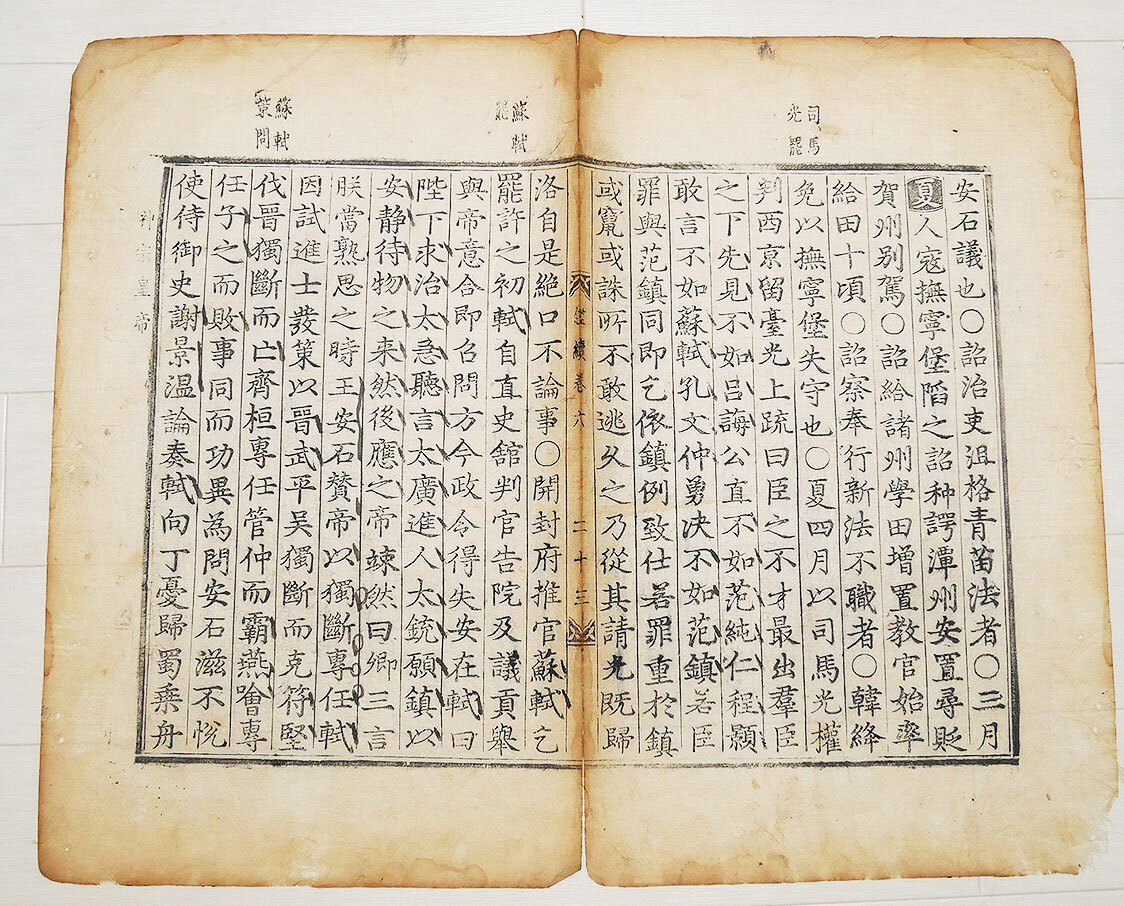 司馬
光罷
蘇軾
罷
蘇軾
策問
安石議也○詔治吏沮格青苗法者○三月
夏人寇撫寧堡陷之詔种諤潭州安置尋貶
賀州别駕○詔給諸州學田增置教官始率
給田十頃○詔察奉行新法不職者○韓絳
免以撫寧堡失守也○夏四月以司馬光權
判西京留臺光上疏曰臣之不才最出羣臣
之下先見不如呂誨公直不如范純仁程顥
敢言不如蘇軾孔文仲勇决不如范鎮若臣
罪與范鎮同即乞依鎮例致仕若罪重於鎮
或竄或誅所不敢逃久之乃從其請光既歸
鑑續卷六 二十三
洛自是絶口不論事○開封府推官蘇軾乞
罷許之初軾自直史舘判官告院及議貢舉
與帝意合即召問方今政令得失安在軾曰
陛下求治太急聽言太廣進人太銳願鎮以
安静待物之来然後應之帝竦然曰卿三言
朕當熟思之時王安石贊帝以獨斷專任軾
因試進士發策以晉武平吳獨斷而克符堅
伐晉獨斷而亡齊桓專任管仲而霸燕噲專
任子之而敗事同而功異為問安石滋不悅
使侍御史謝景温論奏軾向丁憂歸蜀乗舟
神宗皇帝